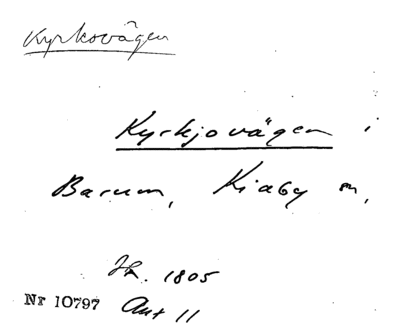 Kyrkovägen
Kyrkjovägen i
Barum, Kiaby sn,
Jk. 1805
Nr 10797 Akt 11